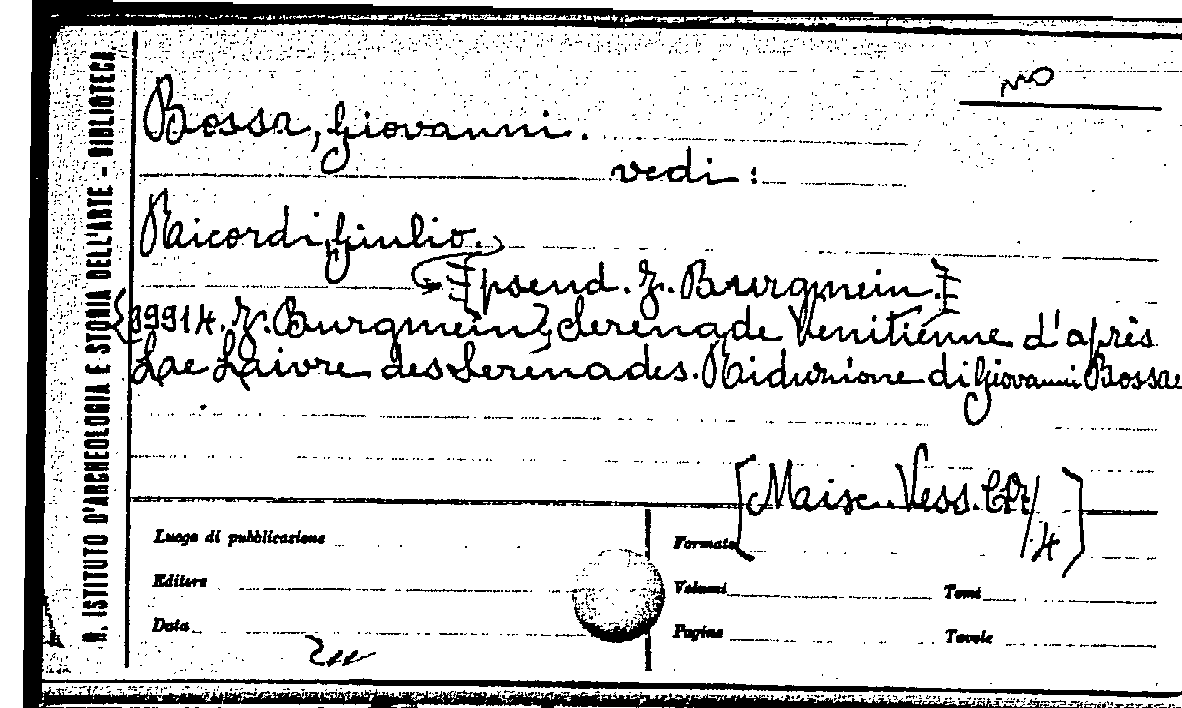 R. ISTITUTO D'ARCHEOLOGIA E STORIA DELL'ARTE - BIBLIOTECA
Bossa, Giovanni.
vedi:
Ricordi, Giulio.
[pseud. J. Burgmein.]
{99914. J. Burgmein}, Serenade Venitienne d'après
Le Livre des Serénades. Riduzione di Giovanni Bossa
[Misc. Vess. CR/4]
Luogo di pubblicazione
Formato
Editore
Volumi
Tomi
Data
Pagine
Tavole